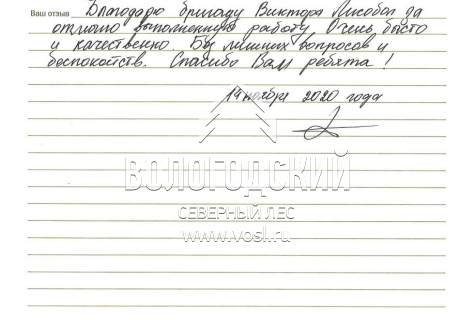 Ваш отзыв Благодарю бригаду Виктора за
отлично выполненную работу. Очень быстро
и качественно. Без лишних вопросов и
беспокойств. Спасибо Вам ребята!
19 ноября 2020 года
ВОЛОГОДСКИЙ
СЕВЕРНЫЙ ЛЕС
www.vosl.ru